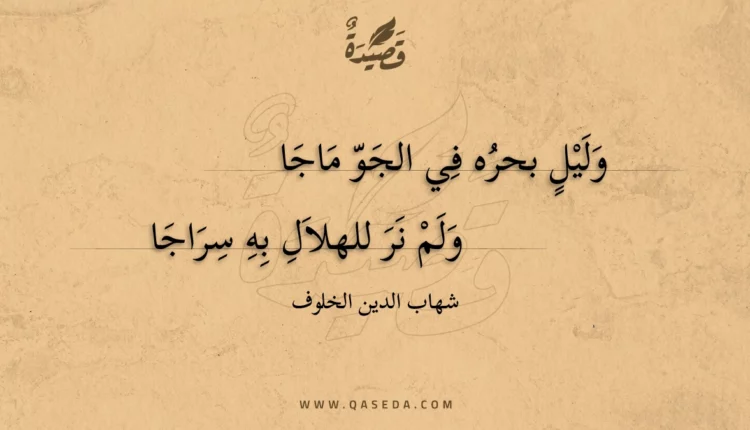 قَصِيْدَةٌ
وَلَيْلٍ بحرُه فِي الجَوّ مَاجَا
وَلَمْ نَرَ للهلاَلِ بِهِ سِرَاجَا
شهاب الدين الخلوف
WWW.QASEDA.COM